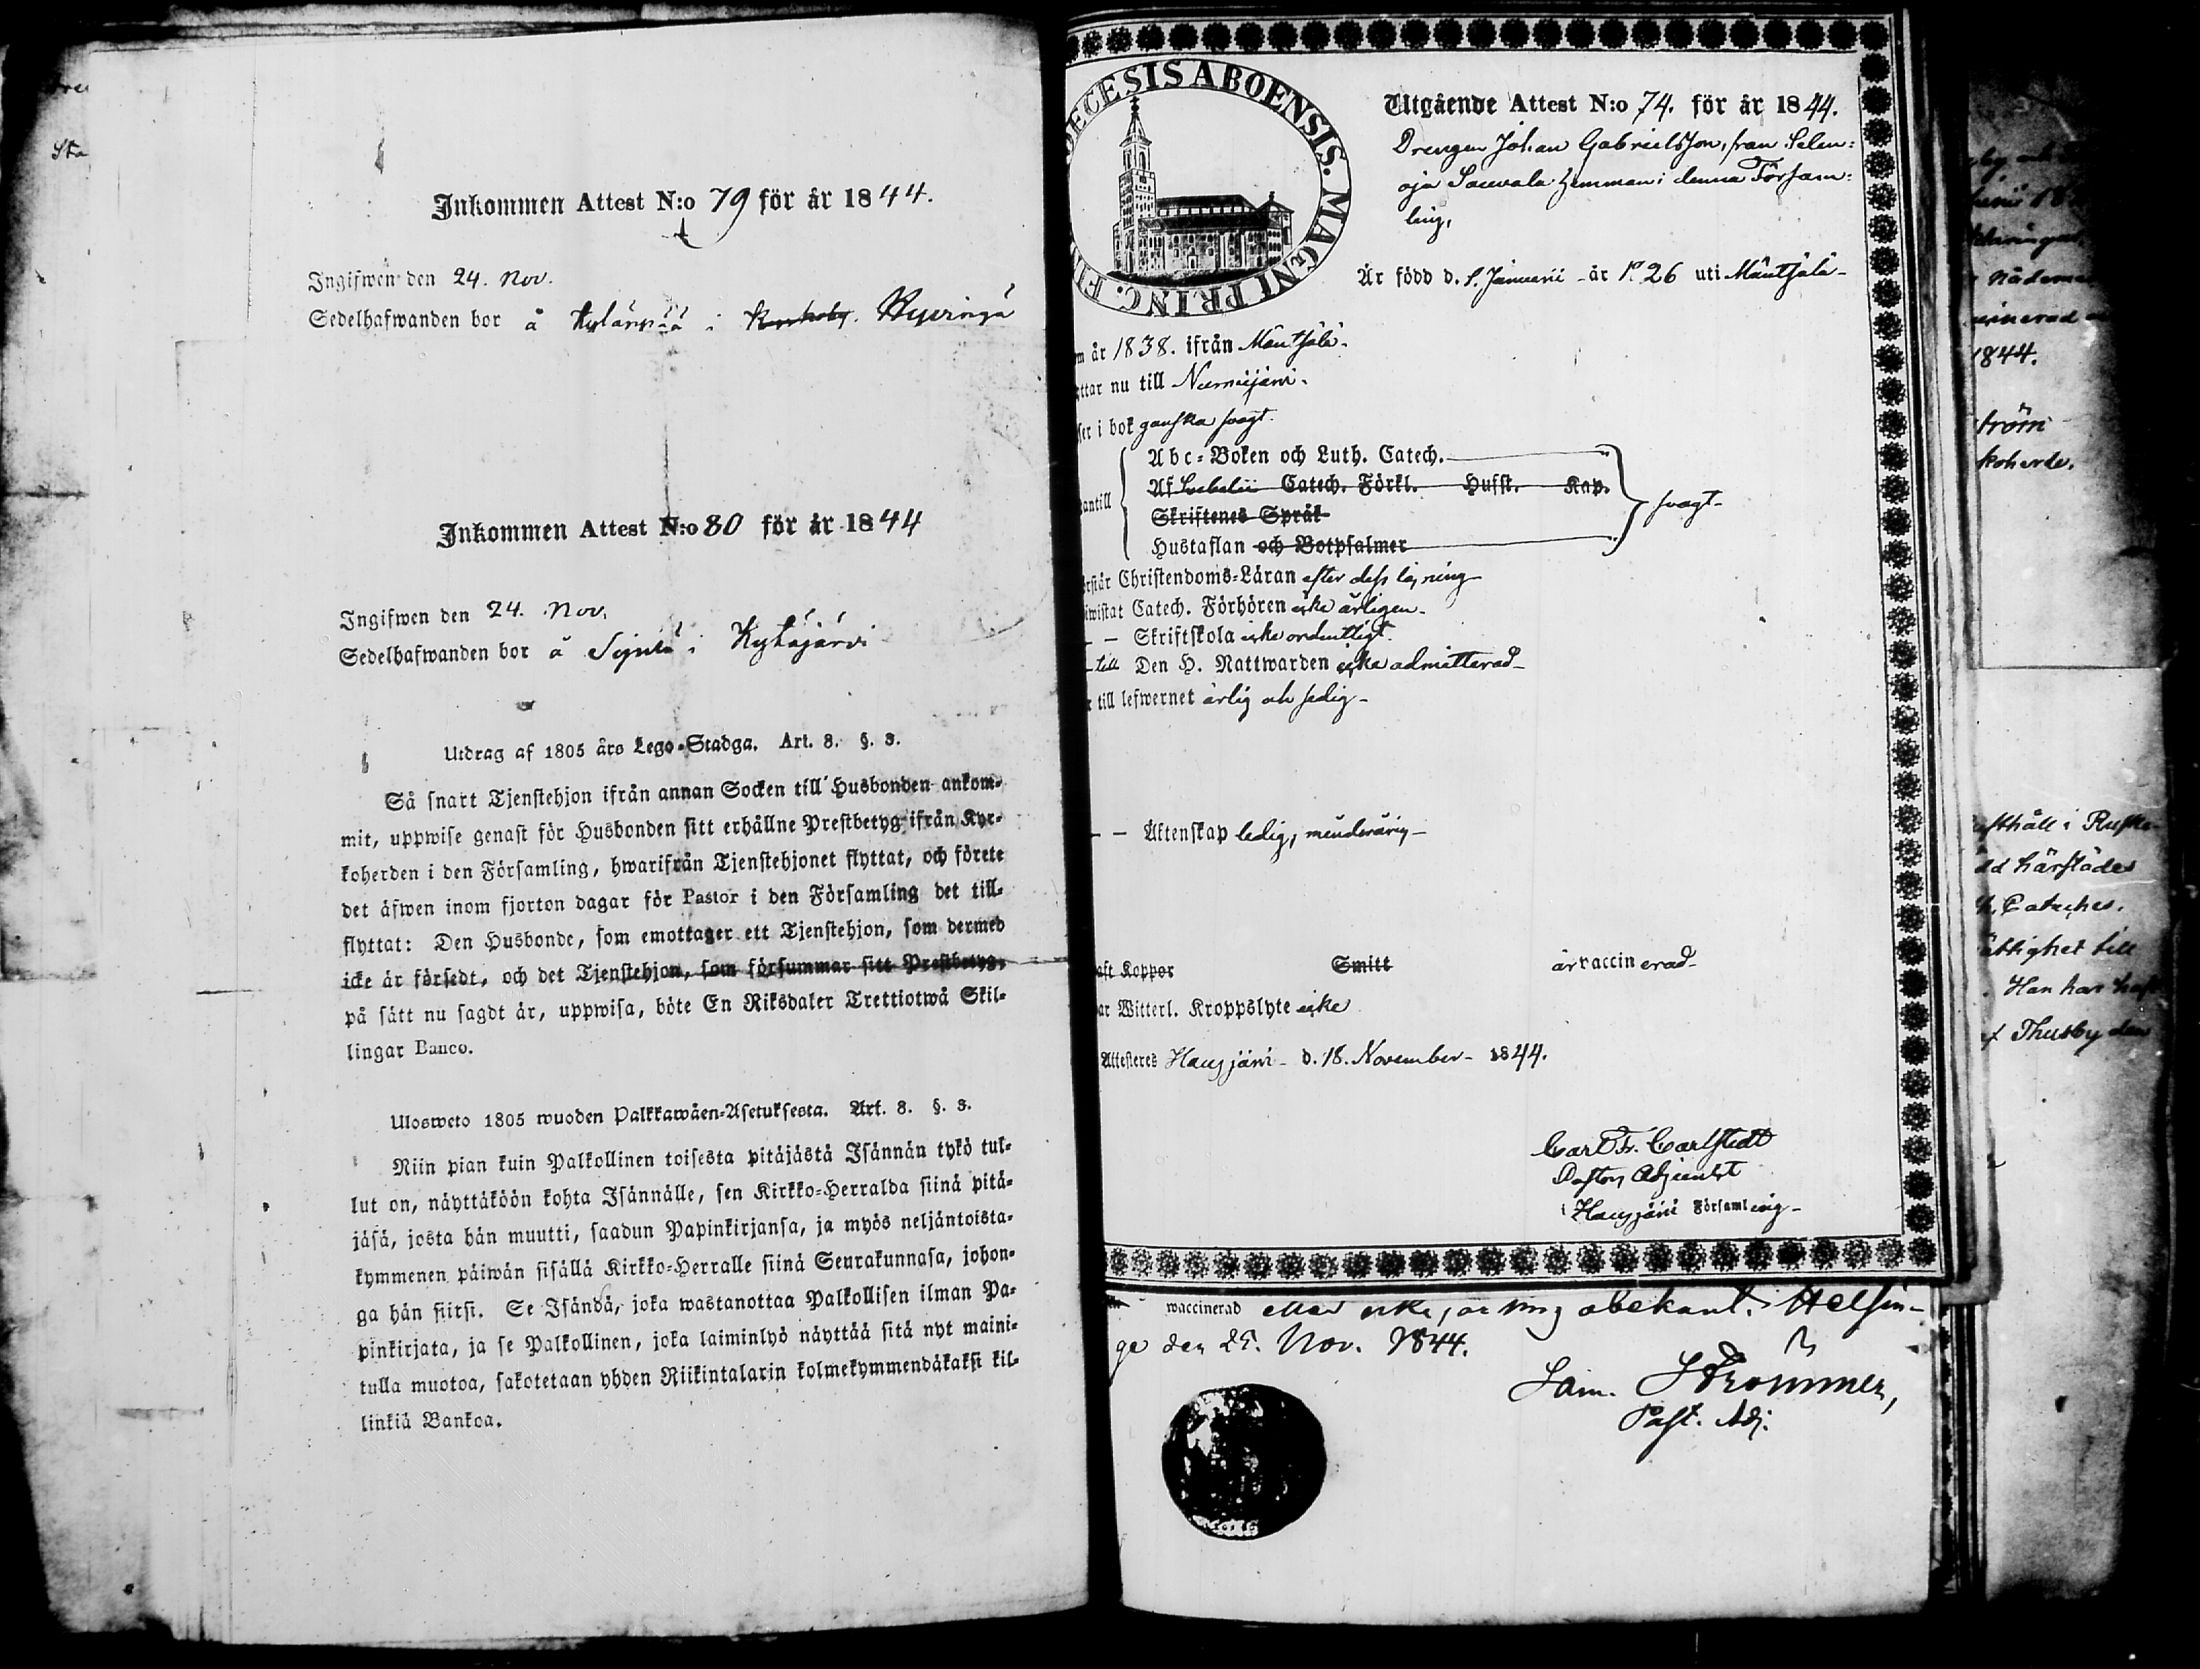 Inkommen Attest N:o 79 för år 1844.
Ingifwen den 24. Nov.
Sedelhafwanden bor å Kylänpää i
Inkommen Attest N:o 80 för år 1844
Ingifwen den 24. Nov.
Sedelhafwanden bor å i Kytäjärvi
Utdrag af 1805 års Lego-Stadga. Art. 8. §. 3.
Så snart Tjenstehjon ifrån annan Socken till Husbonden ankom-
mit, uppwise genast för Husbonden sitt erhållne Prestbetyg ifrån Kyr-
koherden i den Församling, hwarifrån Tjenstehjonet flyttat, och förete
det äfwen inom fjorton dagar för Pastor i den Församling det till-
flyttat: Den Husbonde, som emottager ett Tjenstehjon, som dermed
icke är försedt, och det Tjenstehjon, som försummar sitt Prestbetyg,
på sätt nu sagdt är, uppwisa, böte En Riksdaler Trettiotwå Skil-
lingar Banco.
Ulosweto 1805 wuoden Palkkawäen-Asetuksesta. Art. 8. §. 3.
Niin pian kuin Palkollinen toisesta pitäjästä Isännän tykö tul-
lut on, näyttäköön kohta Isännälle, sen Kirkko-Herralda siinä pitä-
jäsä, josta hän muutti, saadun Papinkirjansa, ja myös neljäntoista-
kymmenen päiwän sisällä Kirkko-Herralle siinä Seurakunnasa, johon-
ga hän siirsi. Se Isändä, joka wastanottaa Palkollisen ilman Pa-
pinkirjata, ja se Palkollinen, joka laiminlyö näyttää sitä nyt maini-
tulla muotoa, sakotetaan yhden Riikintalarin kolmekymmendäkaksi kil-
linkiä Bankoa.
DIOECESIS ABOENSIS. MAGNI PRINC. FIN
Utgående Attest N:o 74. för år 1844.
Drengen Johan Gabrielsson, från Selen:
oja hemman i denna Försam:
ling,
Är född d. Januarii år 1826 uti Mäntsälä
m år 1838. ifrån Mäntsälä.
yttar nu till Nurmijärvi.
ser i bok ganska swagt.
antill
Abc-Boken och Luth. Catech.
Af Svebelii Catech. Förkl. Husst. Kap.
Skriftenes Språk
Hustaflan och Botpsalmer
swagt
örstår Christendoms-Läran efter dess läsning
iwistat Catech. Förhören icke årligen.
Skriftskola icke ordentligt.
till Den H. Nattwarden icke admitterad
till lefwernet ärlig och sedig
Äktenskap ledig, minderårig
aft Koppor Smitt är vaccinerad
ar Witterl. Kroppslyte icke
Attesteres Hausjärvi d. 18. November 1844.
Carl Fr. Carlstedt
Pastors Adjunkt
i Hausjärvi Församling
waccinerad eller icke, är mig obekant. Helsin-
ge den 25. Nov. 1844.
Sam. Strömmer,
Past. Adj.
1844.
ström
koherde.
härstädes
Cateches.
Han har haft
af Thusby den